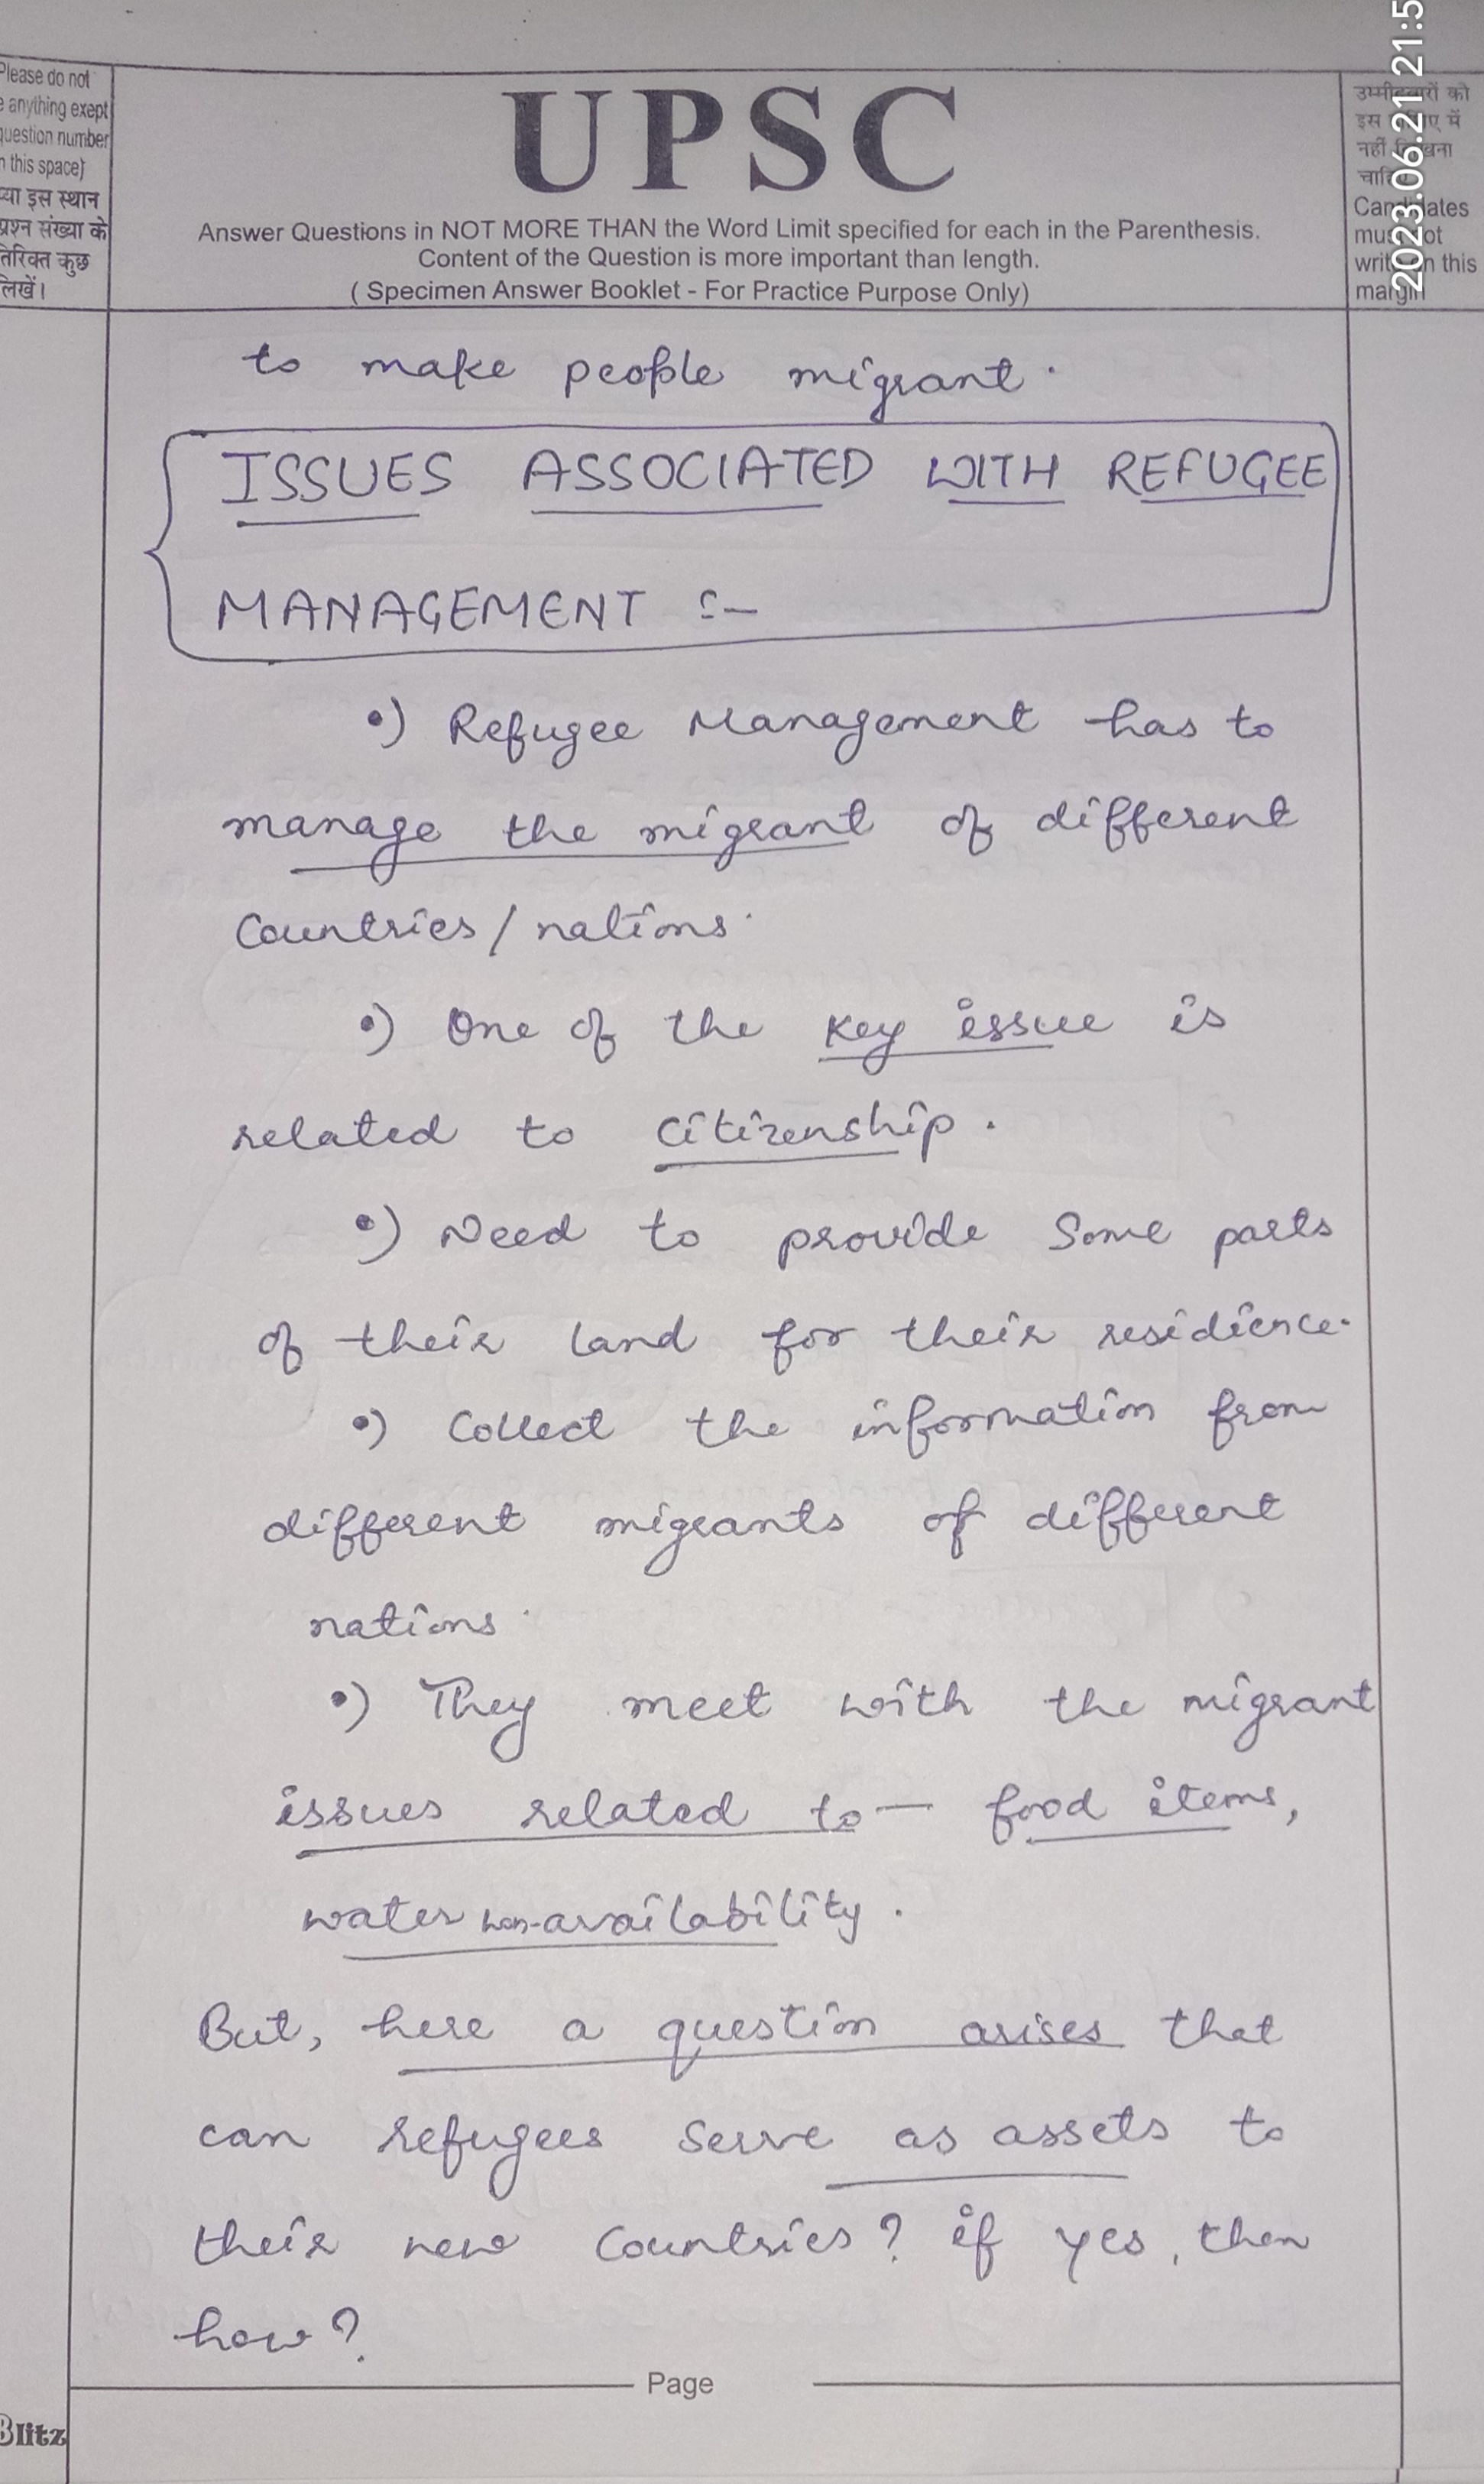 Please do not
anything exept
question number
this space)
इस स्थान
प्रश्न संख्या के
कुछ
लिखें।
UPSC
Answer Questions in NOT MORE THAN the Word Limit specified for each in the Parenthesis.
Content of the Question is more important than length.
( Specimen Answer Booklet - For Practice Purpose Only)
उम्मीदवारों को
इस में
नहीं
Candidates
must not
write on this
margin
2023.06.21 21:5
to make people migrant.
ISSUES ASSOCIATED WITH REFUGEE
MANAGEMENT :-
•) Refugee Management has to
manage the migrant of different
Countries/nations.
•) One of the key issue is
related to citizenship.
•) Need to provide Some parts
of their land for their residience.
•) Collect the information from
different migrants of different
nations.
•) They meet with the migrant
issues related to — food items,
water non-availability.
But, here a question arises that
can refugees Serve as assets to
their new Countries? if yes, then
how?
Page
Blitz